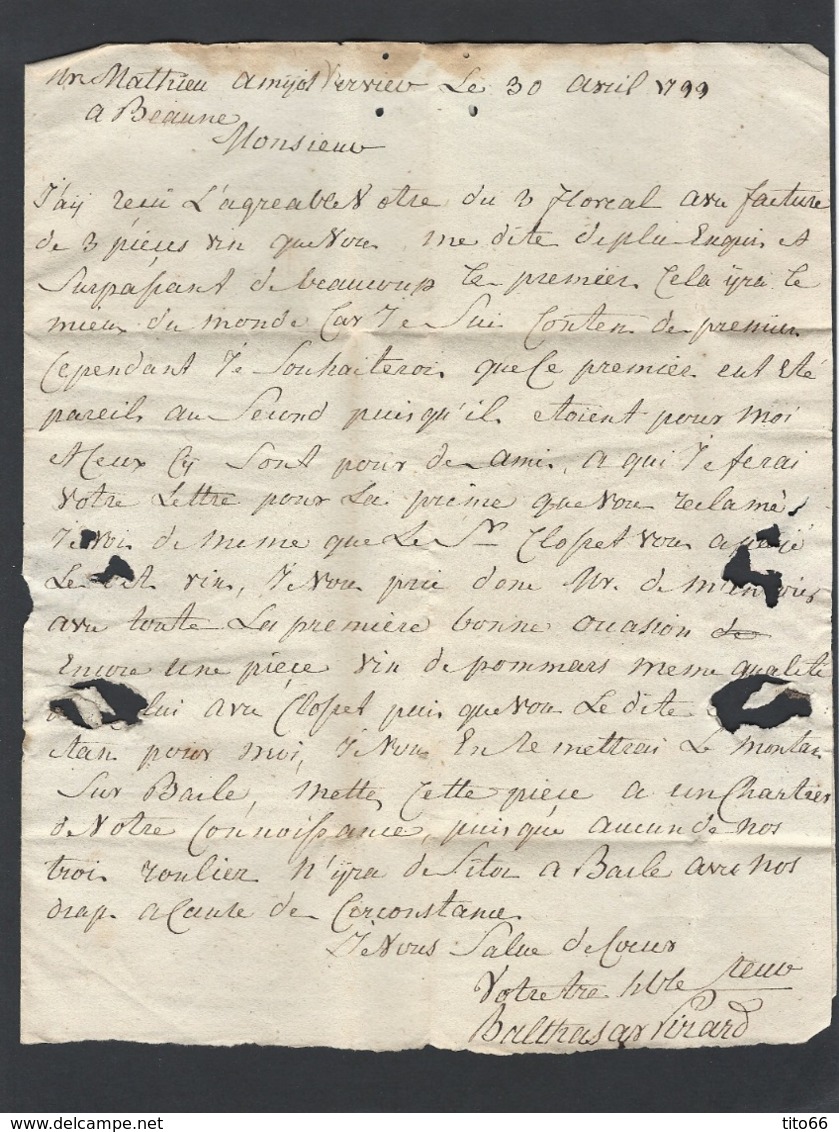 Mr Mathieu amyot Vervier Le 30 avril 1799
a Beaune
Monsieur
J'aÿ recu L'agreable Votre du 3 floreal avec facture
de 3 pieces vin que Vous me dite de plu Exquis et
Surpassant de beaucoup le premier Cela ÿra le
mieux du monde Car Je Sui Conten de premier
Cependant Je Souhaiterois que Ce premier eut Eté
pareil au Second puisqu'il etoient pour moi
et Ceux Cÿ Sont pour de ami, a qui Je ferai
Votre Lettre pour La prime que Vous reclamé
Je Voi de meme que Le Sr Closset Vous a
Le vin, Je Vous prie donc Mr. de m'envoier
avec toute La premiere bonne ouasion de
Encore une piece vin de pommars meme qualité
lui avec Closset puis que Vous Le dite
etan pour moi, Je Vous En Remettrai Le montan
Sur Basle, mette Cette piece a un Chartier
de Votre Connoissance, puisque aucun de nos
trois roulier n'ÿra de Sitot a Basle avec nos
drap a Cause de Circonstance
Je Vous Salue de Coeur
Votre tre hble
Balthasar Pirard
tito66